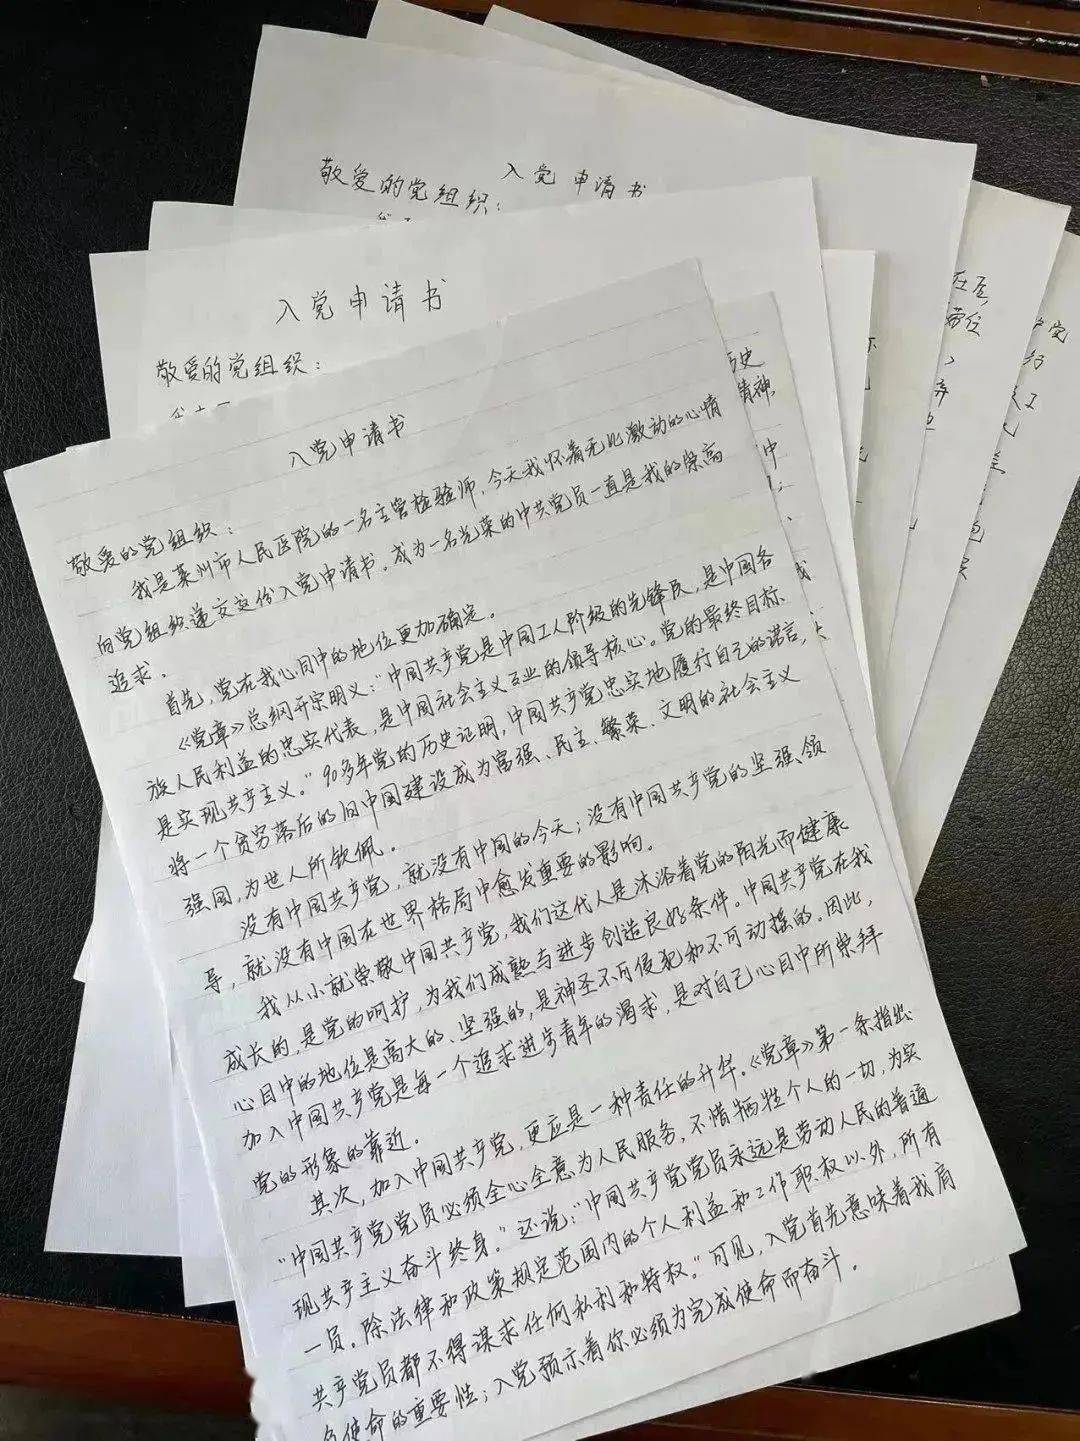 入党申请书
敬爱的党组织：
入党申请书
敬爱的党组织：
入党申请书
敬爱的党组织：
我是莱州市人民医院的一名主管检验师，今天我怀着无比激动的心情
向党组织递交这份入党申请书。成为一名光荣的中共党员一直是我的崇高
追求。
首先，党在我心目中的地位更加确定。
《党章》总纲开宗明义：“中国共产党是中国工人阶级的先锋队，是中国各
族人民利益的忠实代表，是中国社会主义事业的领导核心。党的最终目标
是实现共产主义。”90多年党的历史证明，中国共产党忠实地履行自己的诺言，
将一个贫穷落后的旧中国建设成为富强、民主、繁荣、文明的社会主义
强国，为世人所钦佩。
没有中国共产党，就没有中国的今天；没有中国共产党的坚强领
导，就没有中国在世界格局中愈发重要的影响。
我从小就崇敬中国共产党，我们这代人是沐浴着党的阳光而健康
成长的，是党的呵护，为我们成熟与进步创造良好条件。中国共产党在我
心目中的地位是高大的、坚强的，是神圣不可侵犯和不可动摇的。因此，
加入中国共产党是每一个追求进步青年的渴求，是对自己心目中所崇拜
党的形象的靠近。
其次，加入中国共产党，更应是一种责任的升华。《党章》第一条指出
“中国共产党党员必须全心全意为人民服务，不惜牺牲个人的一切，为实
现共产主义奋斗终身。”还说：“中国共产党党员永远是劳动人民的普通
一员。除法律和政策规定范围内的个人利益和工作职权以外，所有
共产党员都不得谋求任何私利和特权。”可见，入党首先意味着我肩
负使命的重要性；入党预示着你必须为完成使命而奋斗。
历史
精神，
中